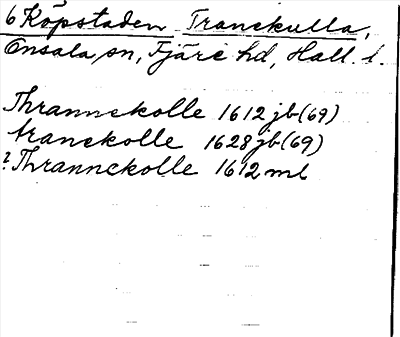 6 Köpstaden Tranekulla,
Onsala sn, Fjäre hd, Hall. l.
Thrannekolle 1612 jb (69)
tranekolle 1628 jb (69)
? Thrannekolle 1612 ml